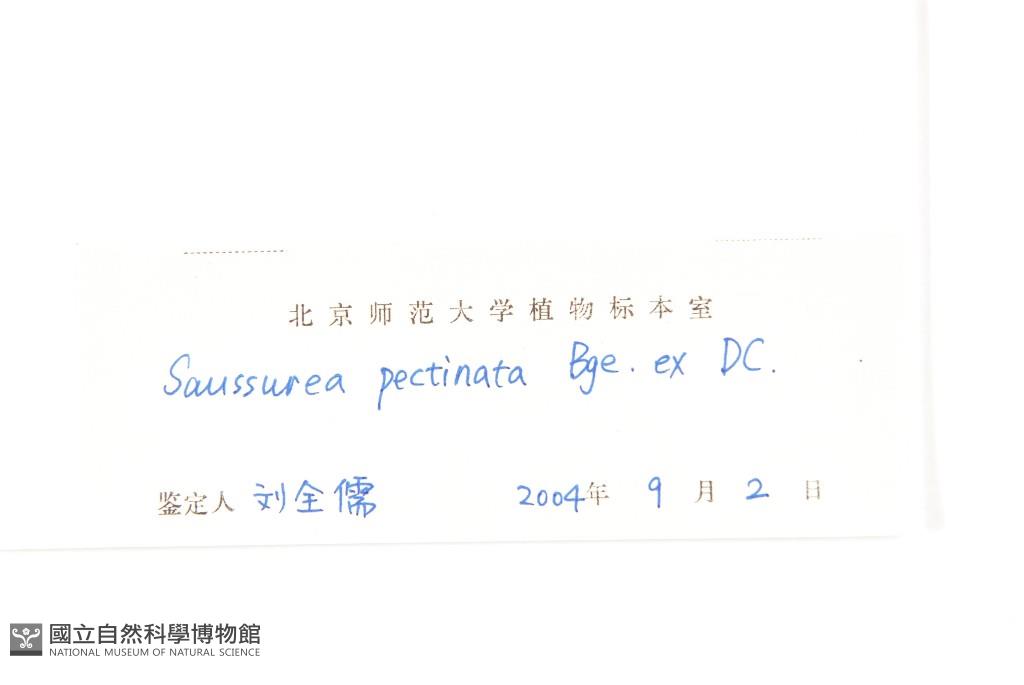 北京师范大学植物标本室
Saussurea pectinata Bge. ex DC.
鉴定人 刘全儒 2004年 9 月 2 日
國立自然科學博物館
NATIONAL MUSEUM OF NATURAL SCIENCE